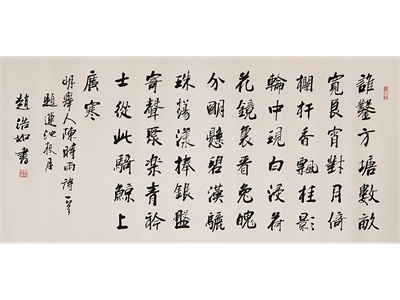 誰鑿方塘數畝
寬良宵對月倚
欄杆香飄桂影
輪中現白浸荷
花鏡裏看兔魄
分明懸碧漢驪
珠蕩漾捧銀盤
寄聲眾染青衿
士從此騎鯨上
廣寒
明舉人陳時雨詩一首
題蓮池夜月
趙浩如書